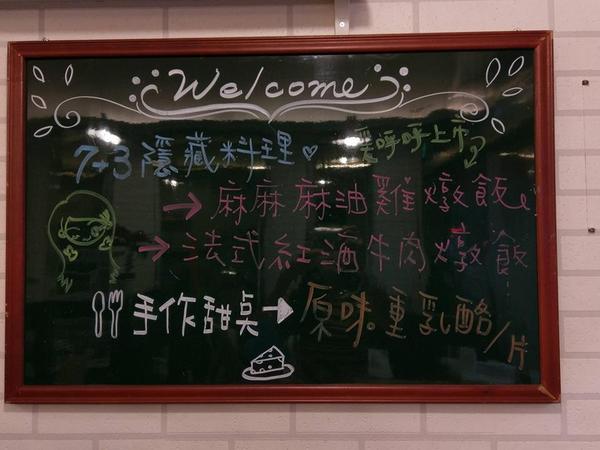 Welcome
7+3隱藏料理♡
暖呼呼上市
→麻麻麻油雞燉飯
→法式紅酒牛肉燉飯
手作甜桌→原味重乳酪/片